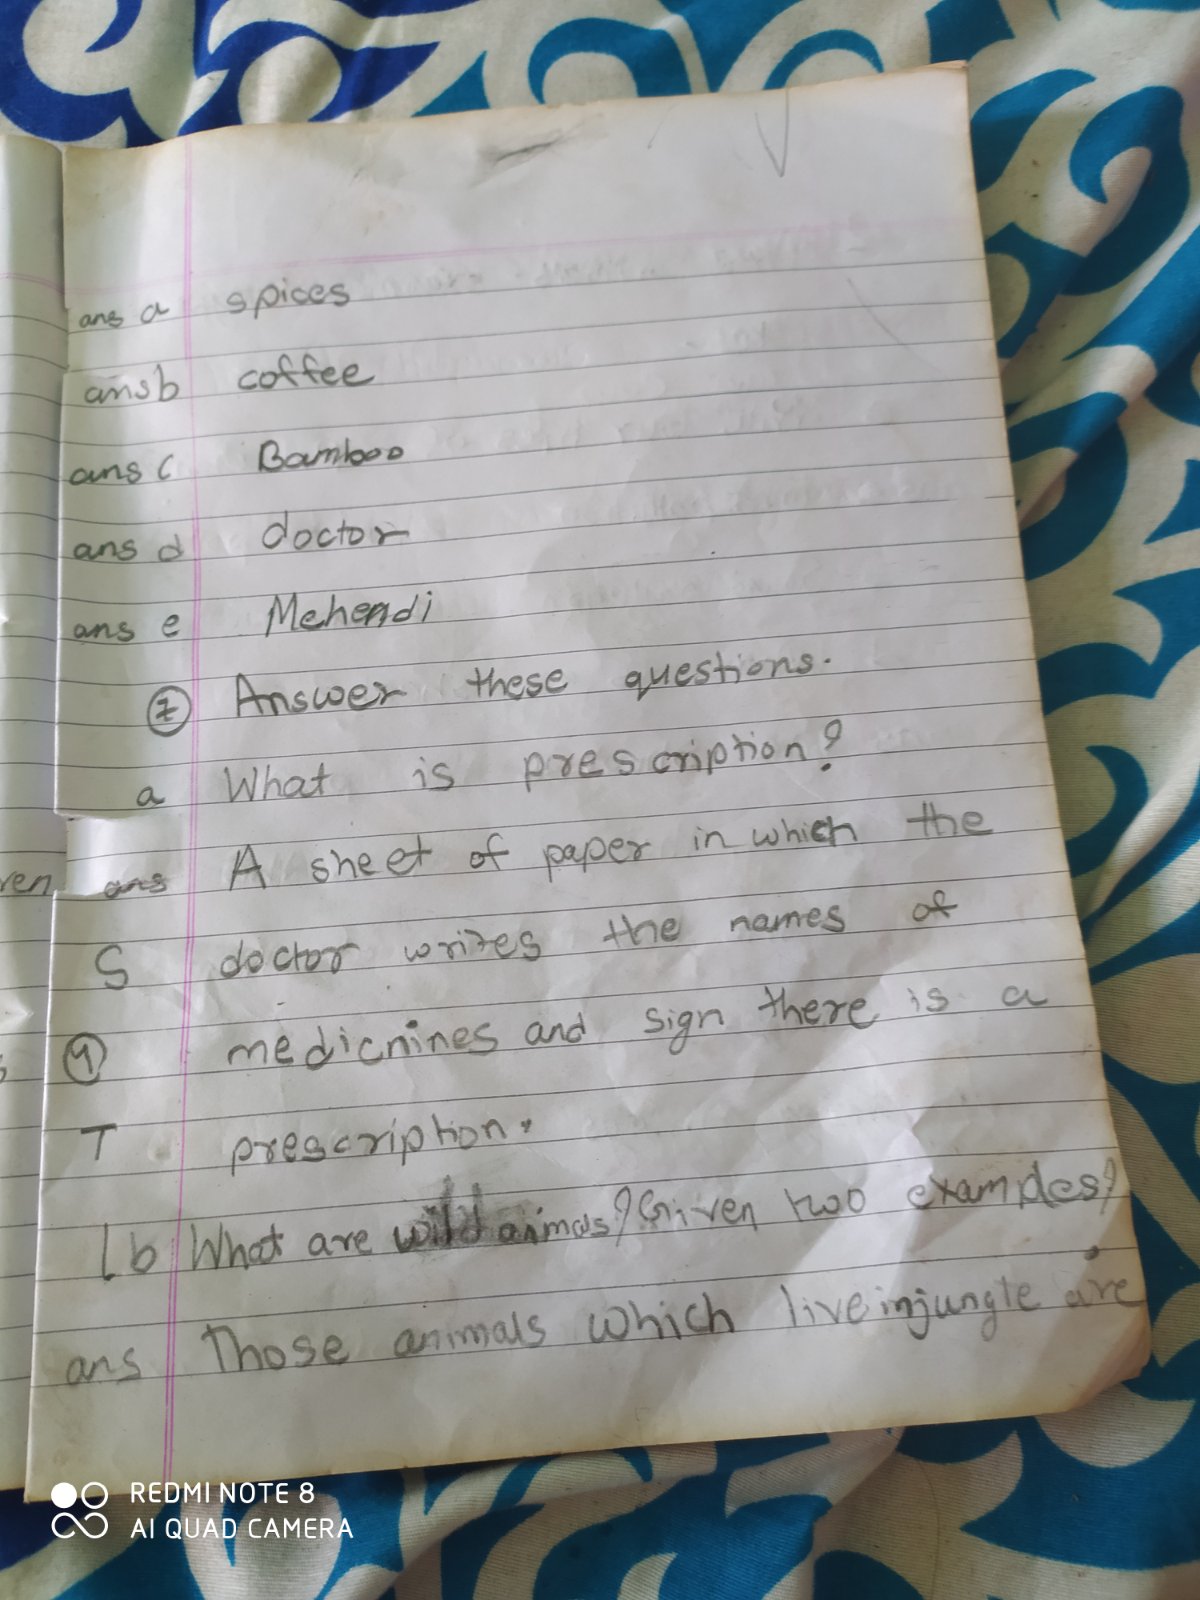 ans a spices
ans b coffee
ans c Bamboo
ans d doctor
ans e Mehendi
Answer these questions.
a What is prescription?
ren ans A sheet of paper in which the
S doctor writes the names of
medicnines and sign there is a
T prescription.
b What are wild animals? Given two examples?
ans Those animals which live in jungle are
REDMI NOTE 8
AI QUAD CAMERA